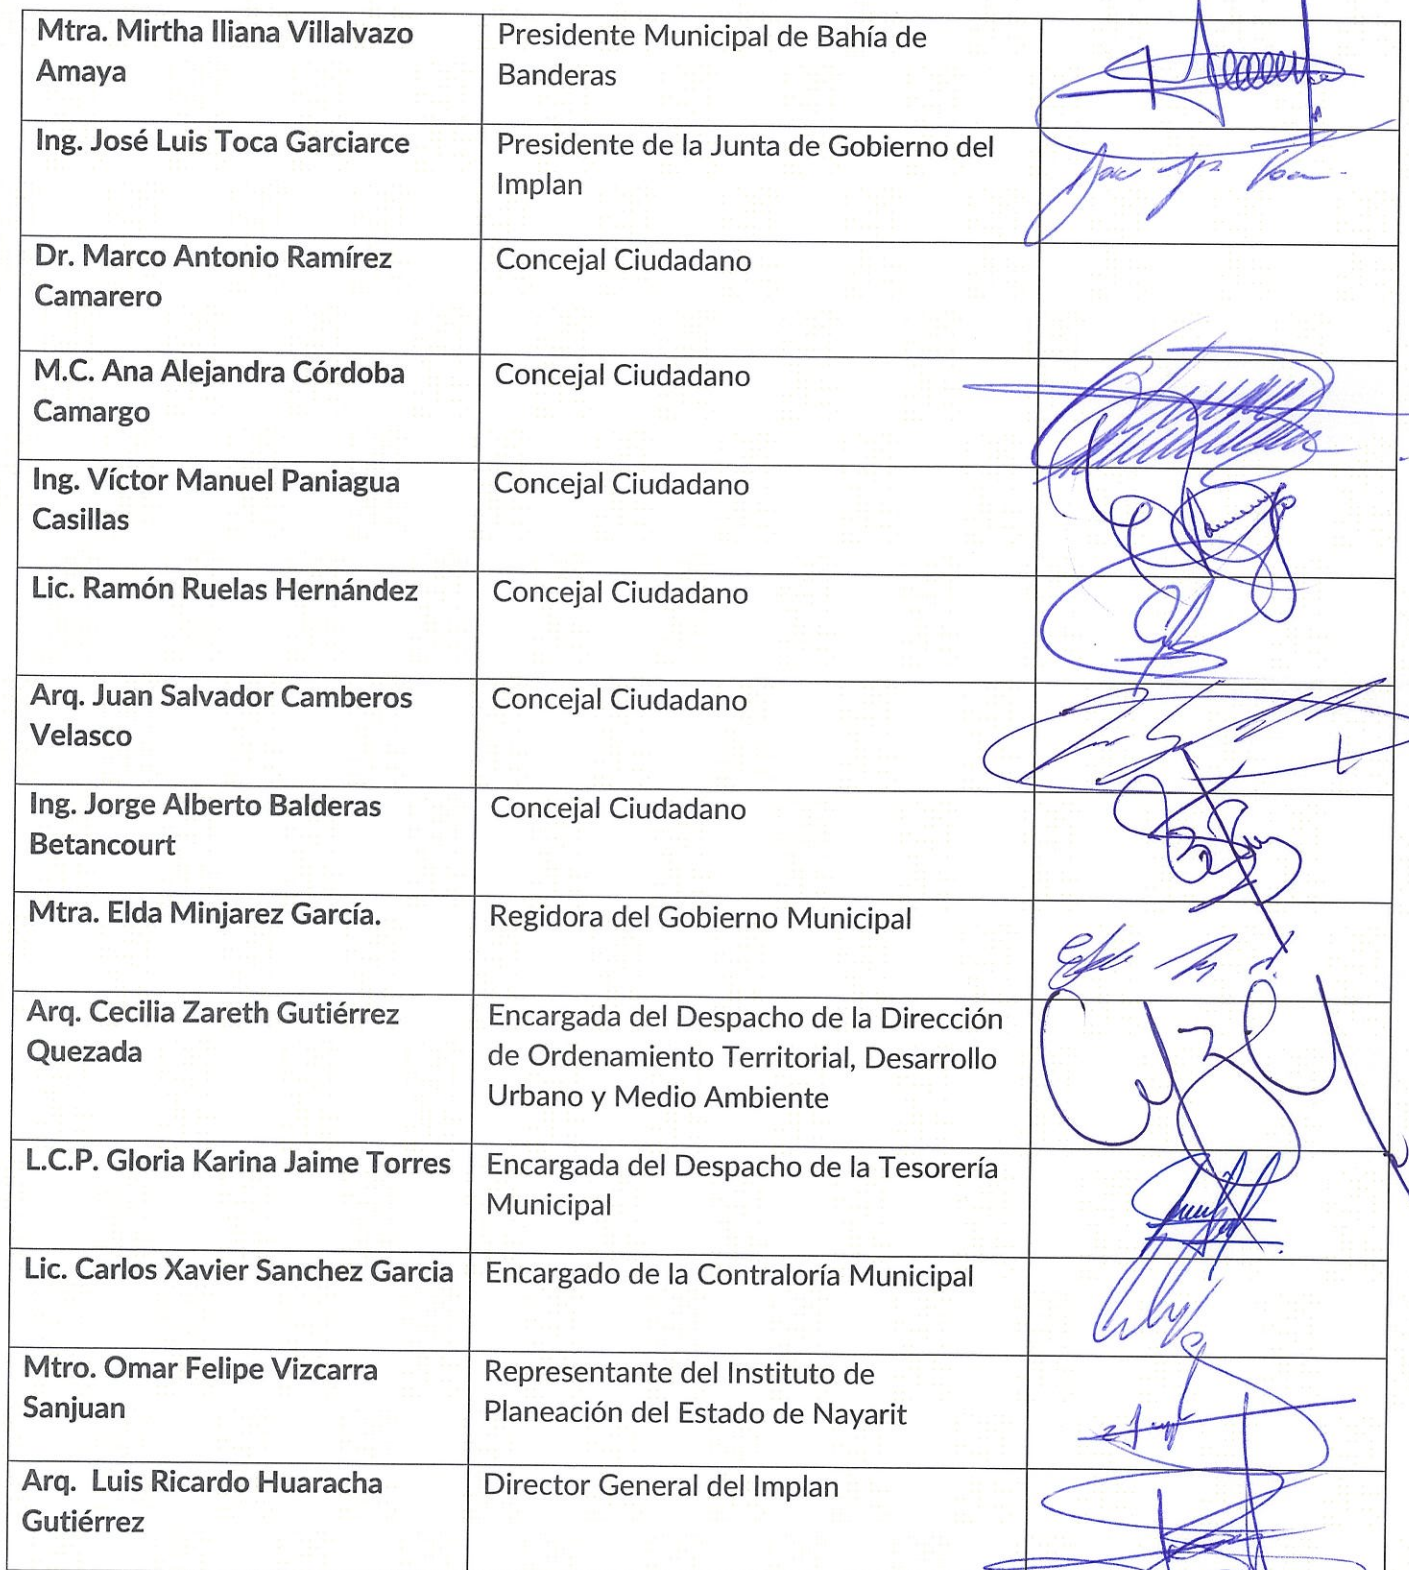 Mtra. Mirtha Iliana Villalvazo
Amaya
Presidente Municipal de Bahía de
Banderas
Ing. José Luis Toca Garciarce
Presidente de la Junta de Gobierno del
Implan
Dr. Marco Antonio Ramírez
Camarero
Concejal Ciudadano
M.C. Ana Alejandra Córdoba
Camargo
Concejal Ciudadano
Ing. Víctor Manuel Paniagua
Casillas
Concejal Ciudadano
Lic. Ramón Ruelas Hernández
Concejal Ciudadano
Arq. Juan Salvador Camberos
Velasco
Concejal Ciudadano
Ing. Jorge Alberto Balderas
Betancourt
Concejal Ciudadano
Mtra. Elda Minjarez García.
Regidora del Gobierno Municipal
Arq. Cecilia Zareth Gutiérrez
Quezada
Encargada del Despacho de la Dirección
de Ordenamiento Territorial, Desarrollo
Urbano y Medio Ambiente
L.C.P. Gloria Karina Jaime Torres
Encargada del Despacho de la Tesorería
Municipal
Lic. Carlos Xavier Sanchez Garcia
Encargado de la Contraloría Municipal
Mtro. Omar Felipe Vizcarra
Sanjuan
Representante del Instituto de
Planeación del Estado de Nayarit
Arq. Luis Ricardo Huaracha
Gutiérrez
Director General del Implan